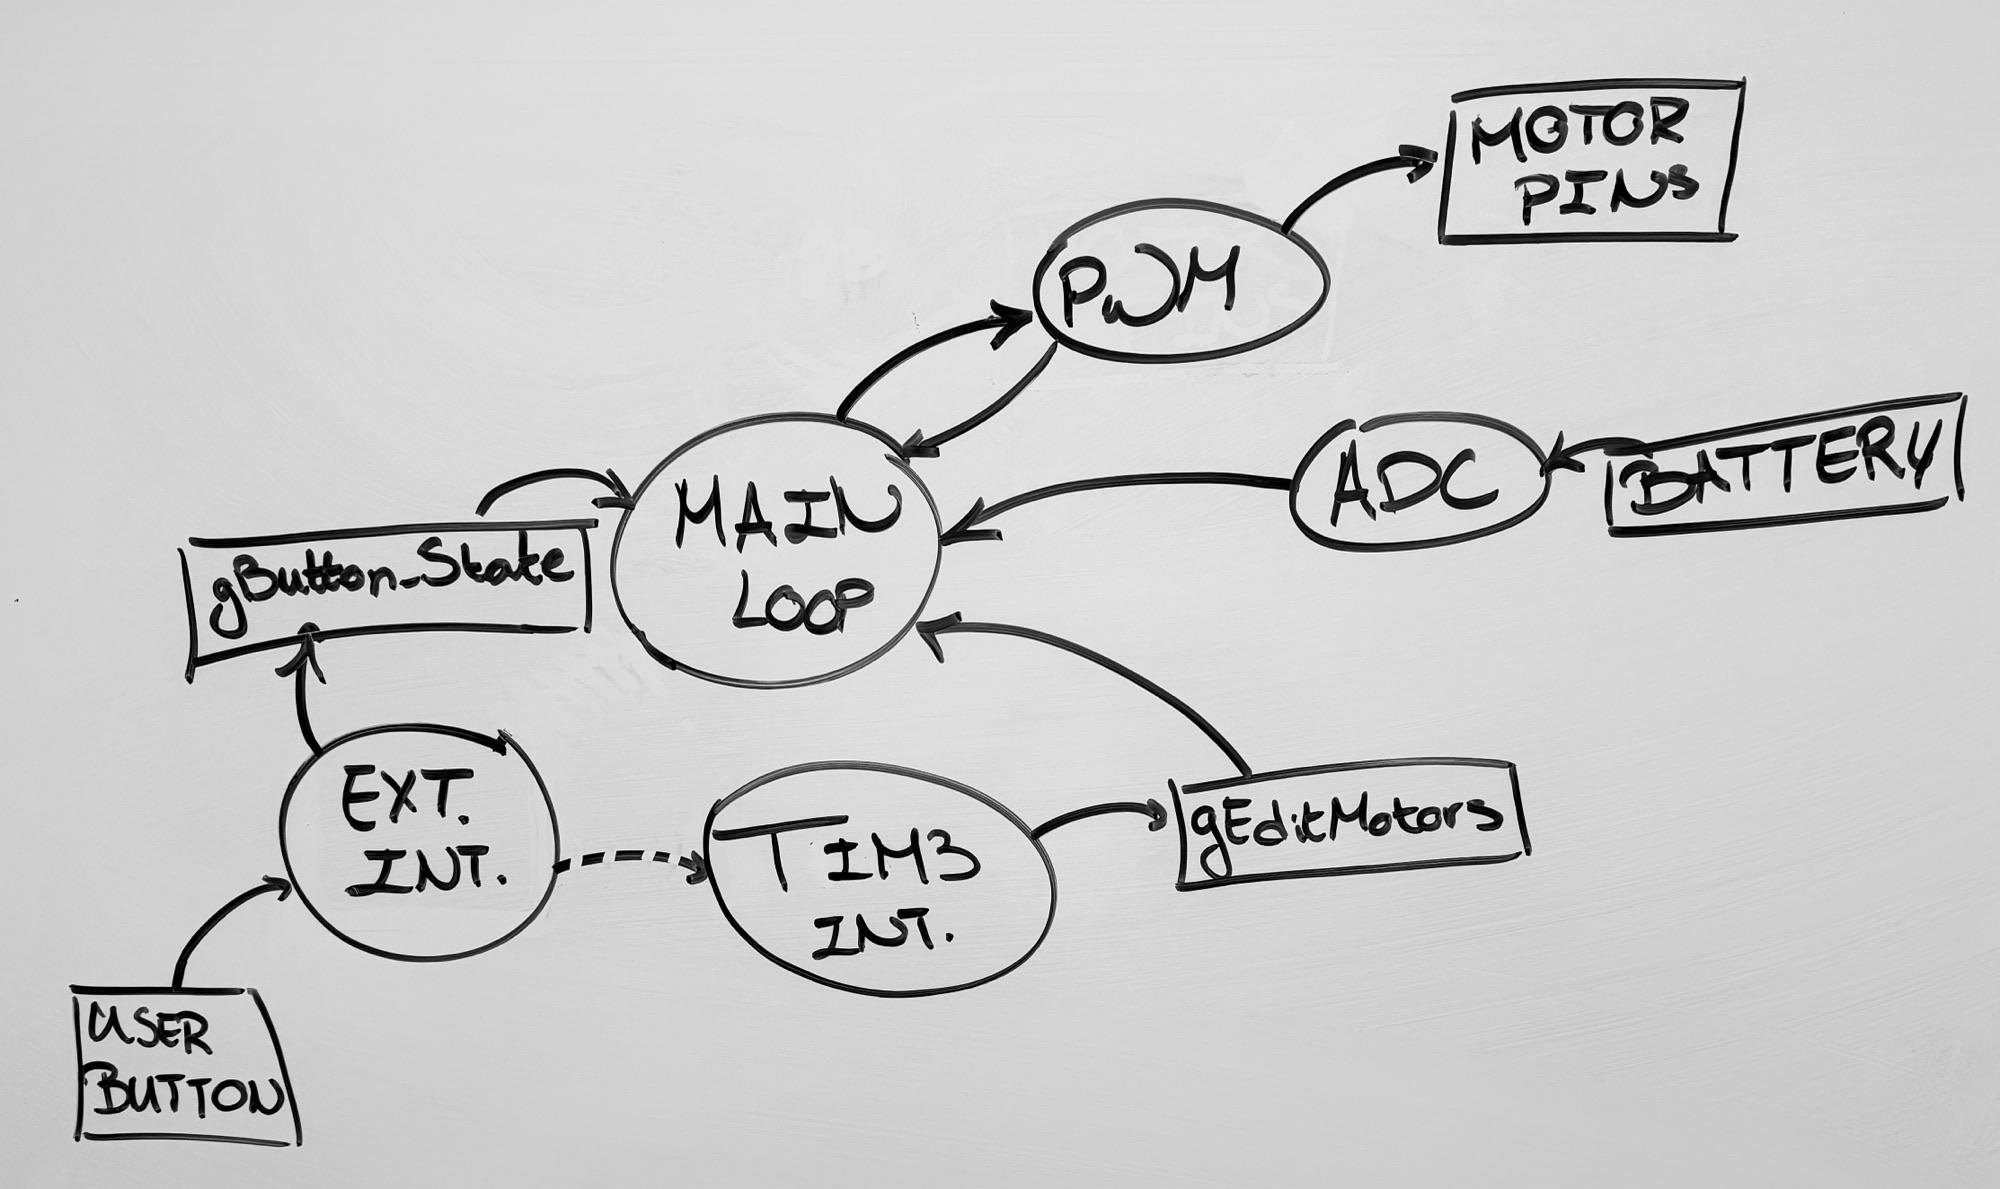 MOTOR
PINs
PWM
BATTERY
ADC
MAIN
LOOP
gButton_State
EXT.
INT.
TIM3
INT.
gEditMotors
USER
BUTTON